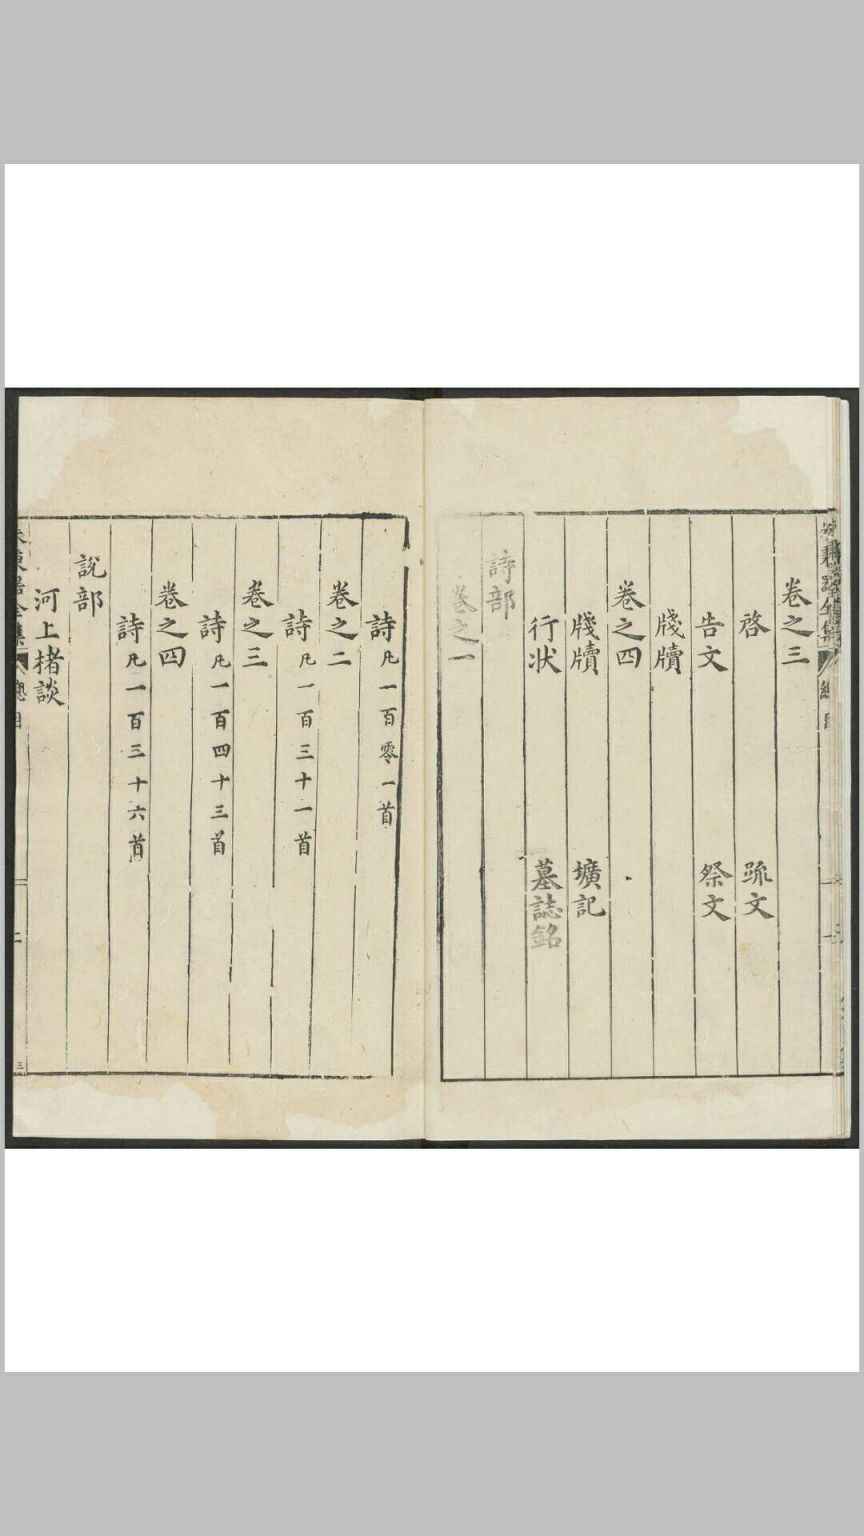 卷之三
啓 疏文
告文 祭文
牋牘
卷之四
牋牘 壙記
行状 墓誌銘
詩部
卷之一
詩凡一百零一首
卷之二
詩凡一百三十一首
卷之三
詩凡一百四十三首
卷之四
詩凡一百三十六首
說部
河上楮談
全集 總目 二 三